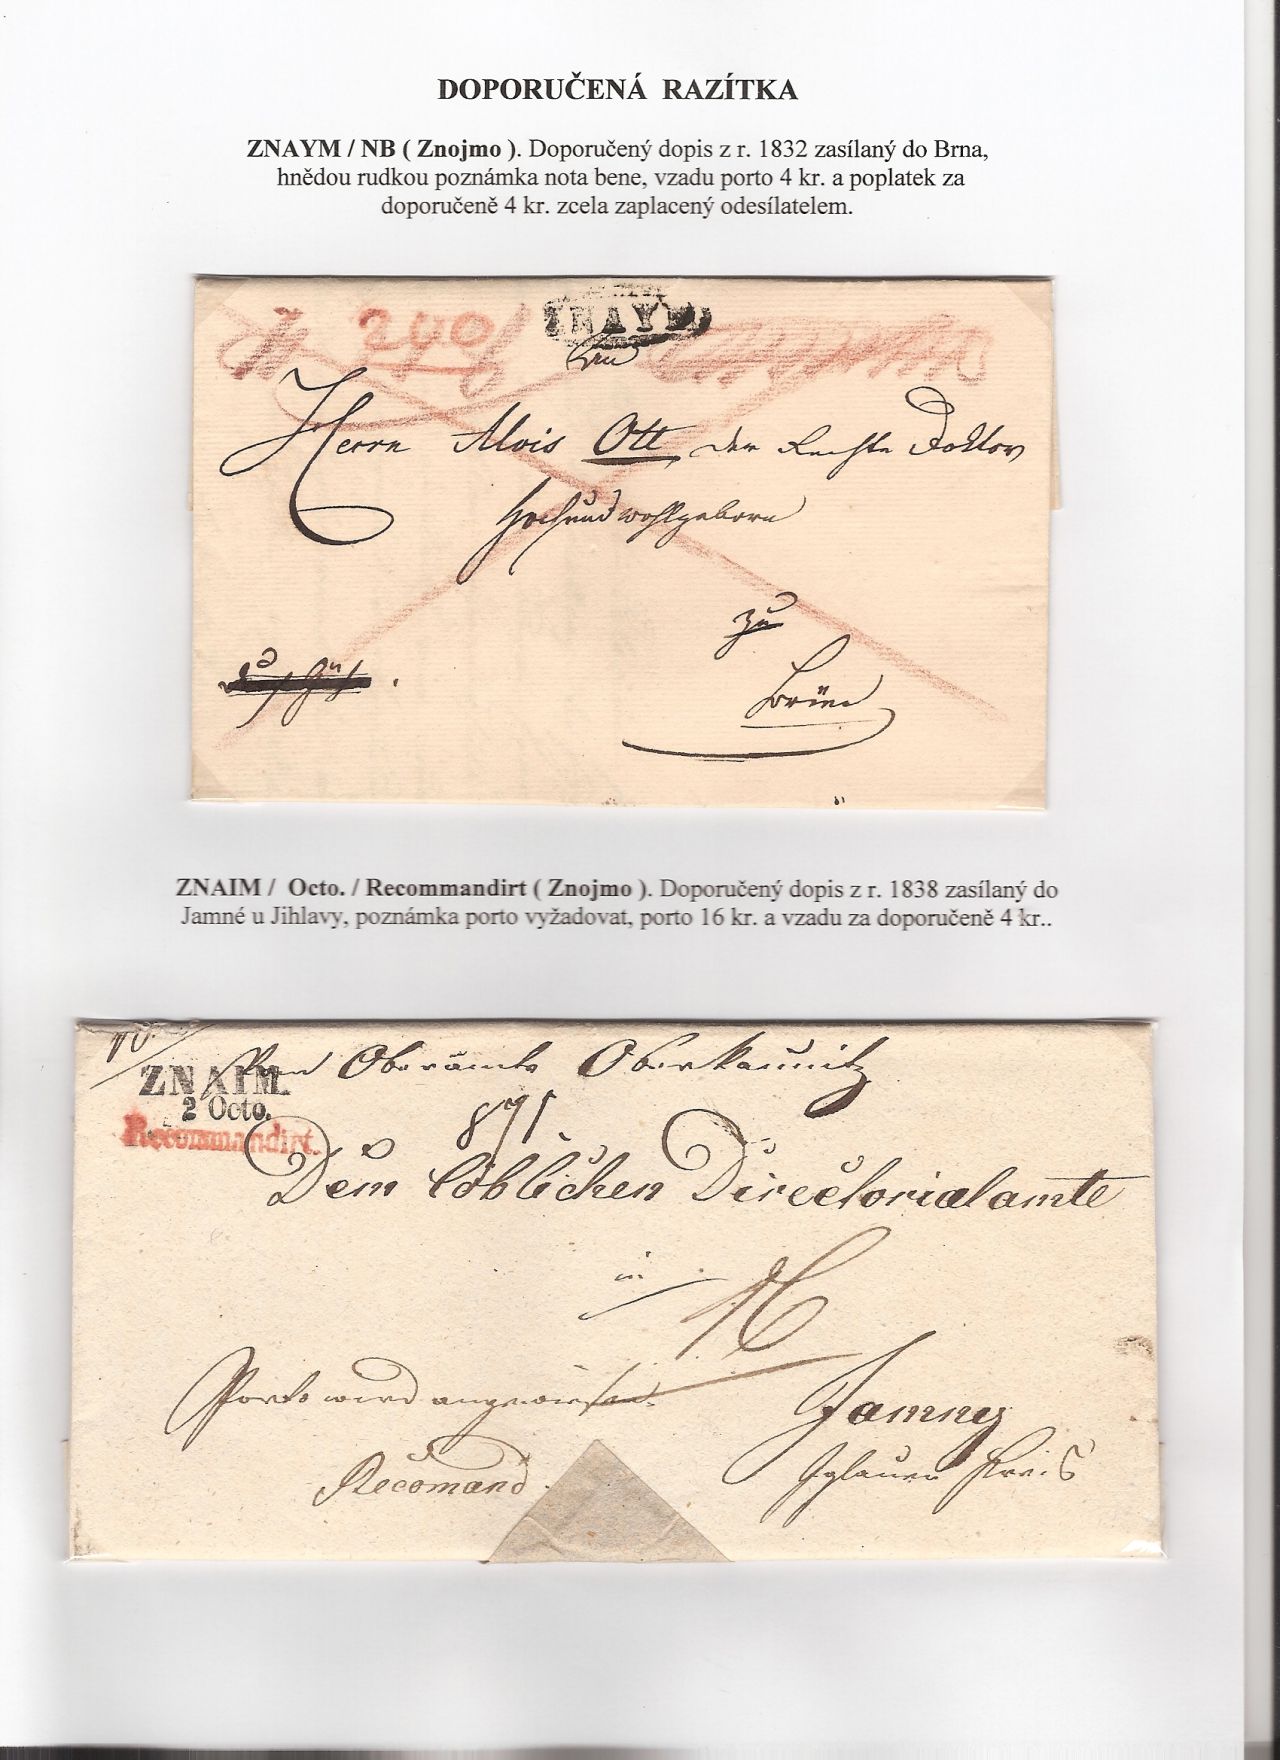 DOPORUČENÁ RAZÍTKA
ZNAYM / NB ( Znojmo ). Doporučený dopis z r. 1832 zasílaný do Brna,
hnědou rudkou poznámka nota bene, vzadu porto 4 kr. a poplatek za
doporučeně 4 kr. zcela zaplacený odesílatelem.
200
ZNAYM
Herrn Alois Ott der Rechte Doktor
Hoch und wohlgeborn
zu
Brünn
ZNAIM / Octo. / Recommandirt ( Znojmo ). Doporučený dopis z r. 1838 zasílaný do
Jamné u Jihlavy, poznámka porto vyžadovat, porto 16 kr. a vzadu za doporučeně 4 kr..
Vom Oberamte Oberkaunitz
ZNAIM.
2 Octo.
891
Recommandirt.
Dem löblichen Directorialamte
in
16
Porto wird angewiesen.
Jamny
Recomand.
Iglauer Kreis